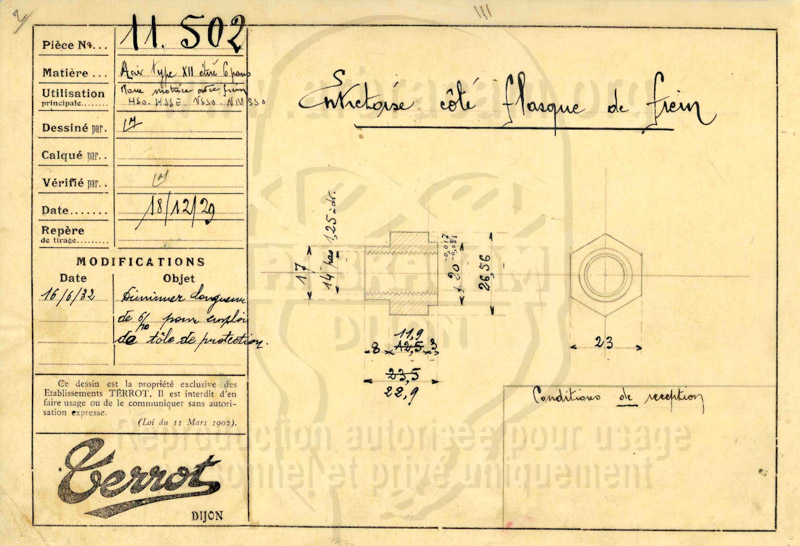 Pièce No... 11.502
Matière ... Acier type XII étiré 6 pans
Utilisation principale....... moyeu avec frein
HSO. HSSE. NSSO. NMSSO
Dessiné par. LM
Calqué par..
Vérifié par.. LM
Date....... 18/12/29
Repère de tirage.......
MODIFICATIONS
Date Objet
16/6/32 Diminuer longueur
de 6/10 pour emploi
de tôle de protection.
Ce dessin est la propriété exclusive des
Etablissements TERROT. Il est interdit d'en
faire usage ou de le communiquer sans autori-
sation expresse.
(Loi du 11 Mars 1902).
Terrot
DIJON
Entretoise côté flasque de frein
17
14 pas 1,25 -dr.
20 -0,017 -0,031
26,56
11,9
8 12,5 3
23,5
22,9
23
Conditions de réception
DIJON
Reproduction autorisée pour usage
personnel et privé uniquement